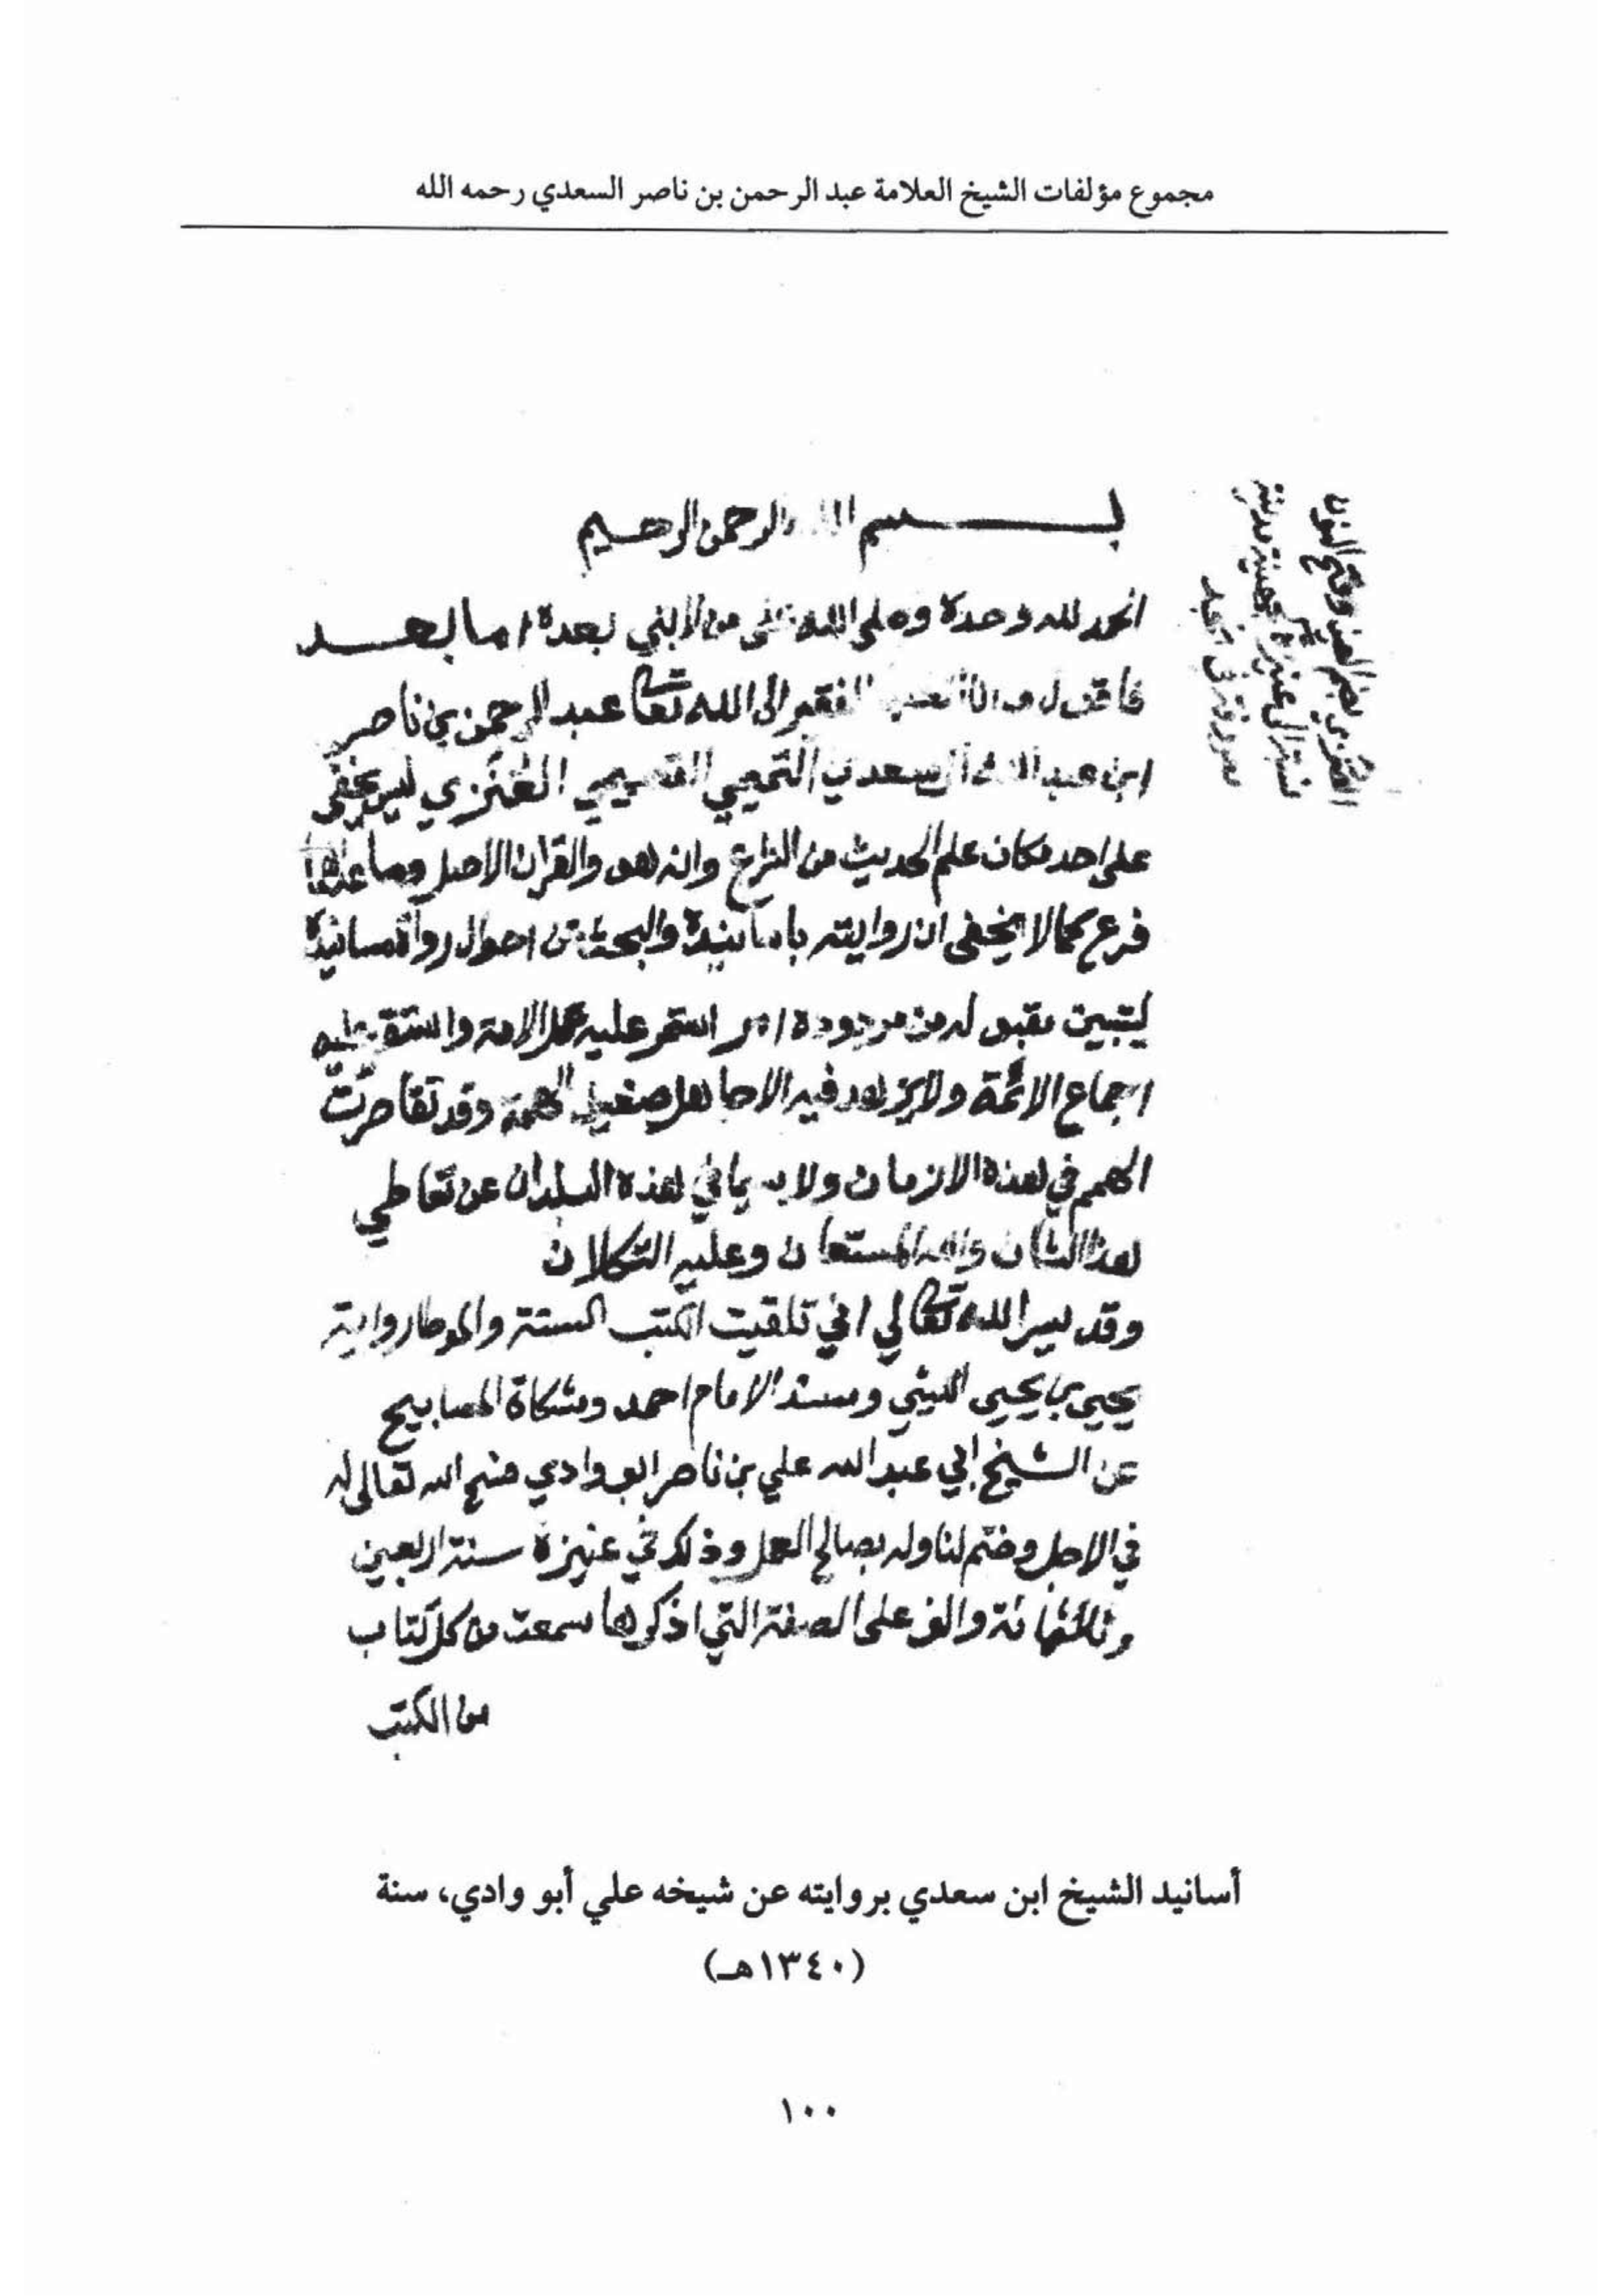 مجموع مؤلفات الشيخ العلامة عبد الرحمن بن ناصر السعدي رحمه الله
بسم الله الرحمن الرحيم
الحمد لله وحده وصلى الله على من لا نبي بعده اما بعد
فاقول وانا العبد الفقير الى الله تعالى عبد الرحمن بن ناصر
ابن عبد الله آل سعدي التميمي القصيمي العُنَزي ليس يخفى
على احد مكان علم الحديث من الشرع وانه هو والقران الاصل وما عداهما
فرع كما لا يخفى ان روايته باسانيده والبحث عن احوال رواة مسانيده
ليتبين مقبوله من مردوده امر استمر عليه عمل الامة واستقر عليه
اجماع الائمة ولا يزهد فيه الا جاهل ضعيف الهمة وقد تقاصرت
الهمم في هذه الازمان ولا سيما في هذه البلدان عن تعاطي
هذا الشان والله المستعان وعليه التكلان
وقد يسر الله تعالى لي اني تلقيت الكتب الستة والموطا رواية
يحيى بن يحيى الليثي ومسند الامام احمد ومشكاة المصابيح
عن الشيخ ابي عبد الله علي بن ناصر ابو وادي فسح الله تعالى له
في الاجل وختم لنا وله بصالح العمل وذلك في عنيزة سنة اربعين
وثلاثمائة والف على الصفة التي اذكرها سمعت من كل كتاب
من الكتب
العُنَزي بضم العين وفتح النون
عنيزة مدينة
من قرى نجد
أسانيد الشيخ ابن سعدي بروايته عن شيخه علي أبو وادي، سنة
(١٣٤٠هـ)
١٠٠